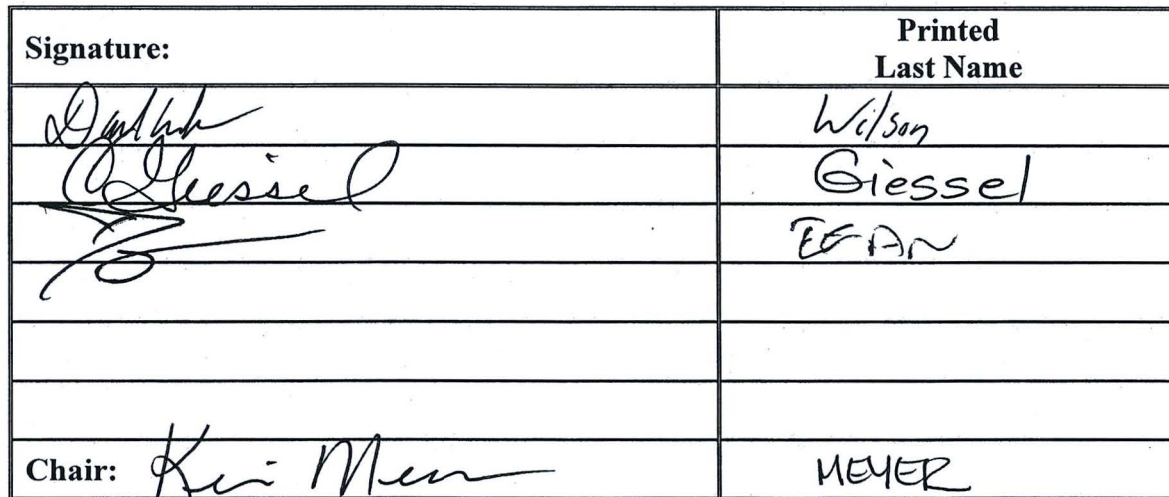 Signature:
Printed
Last Name
Wilson
C Giessel
Giessel
Chair: Kevin Meyer
MEYER